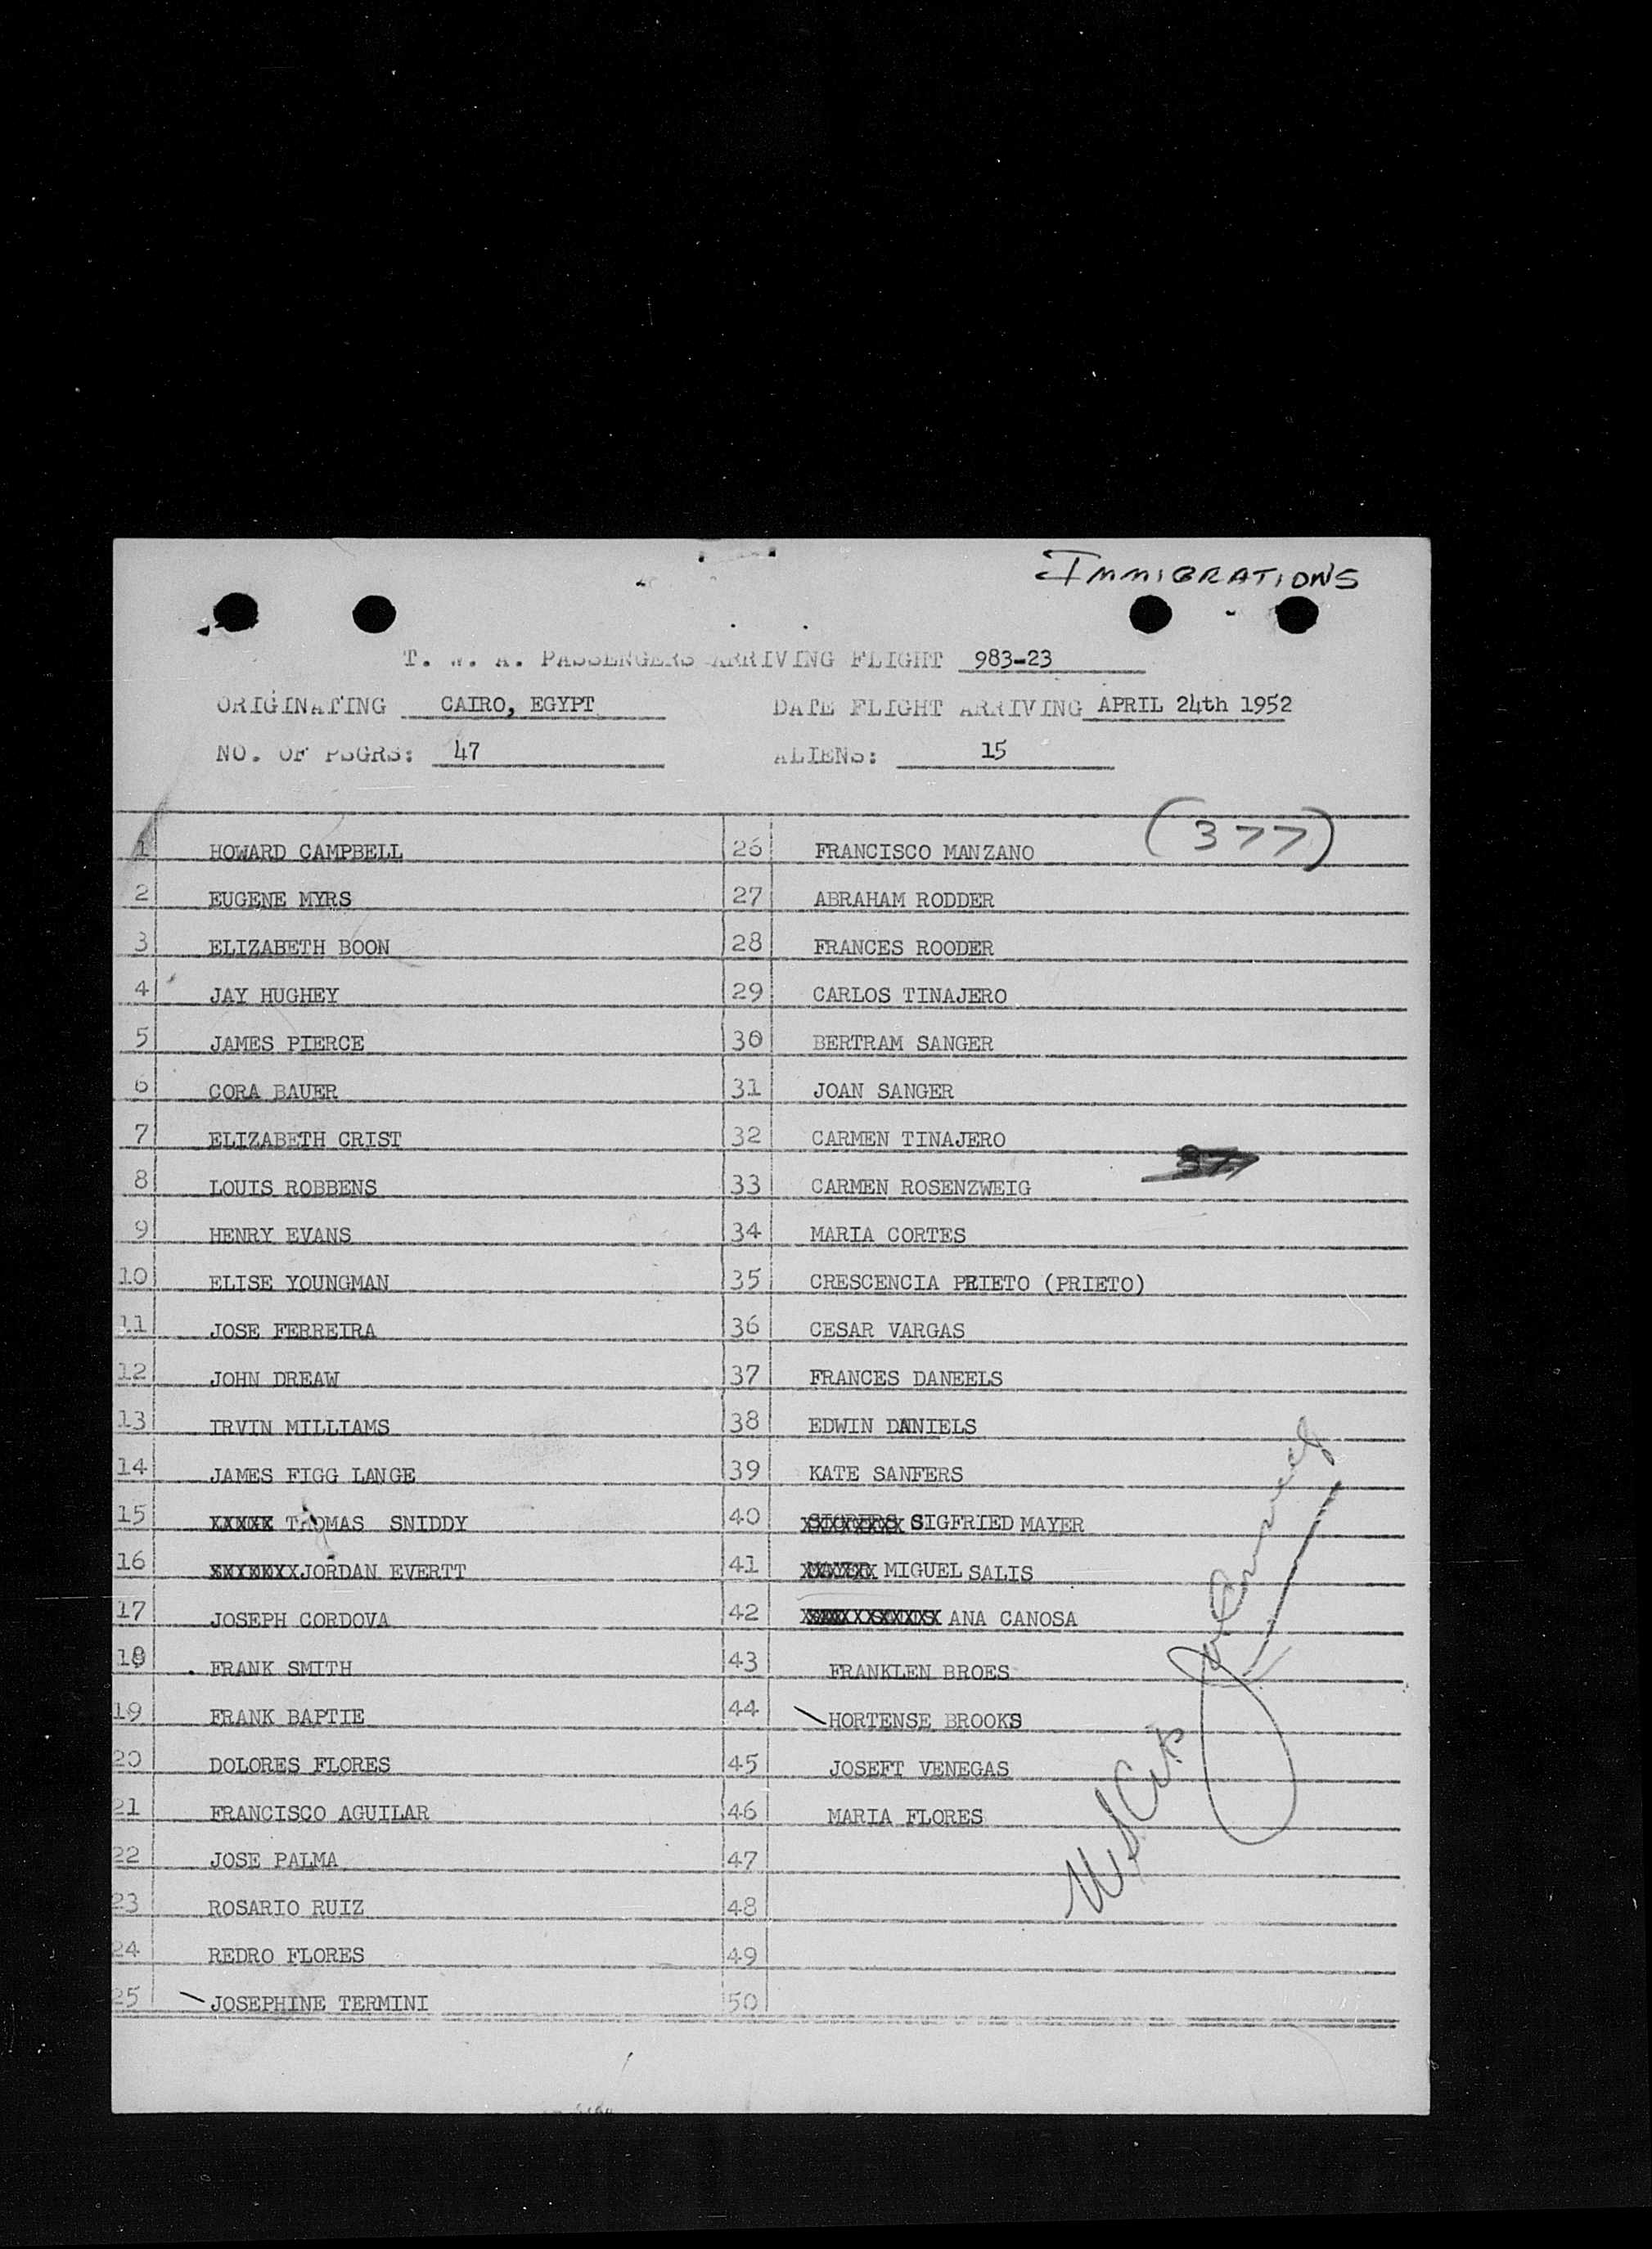 IMMIGRATIONS
T. W. A. PASSENGERS ARRIVING FLIGHT 983-23
ORIGINATING CAIRO, EGYPT DATE FLIGHT ARRIVING APRIL 24th 1952
NO. OF PSGRS: 47 ALIENS: 15
(377)
1 HOWARD CAMPBELL
2 EUGENE MYRS
3 ELIZABETH BOON
4 JAY HUGHEY
5 JAMES PIERCE
6 CORA BAUER
7 ELIZABETH CRIST
8 LOUIS ROBBENS
9 HENRY EVANS
10 ELISE YOUNGMAN
11 JOSE FERREIRA
12 JOHN DREAW
13 IRVIN MILLIAMS
14 JAMES FIGG LANGE
15 THOMAS SNIDDY
16 JORDAN EVERTT
17 JOSEPH CORDOVA
18 FRANK SMITH
19 FRANK BAPTIE
20 DOLORES FLORES
21 FRANCISCO AGUILAR
22 JOSE PALMA
23 ROSARIO RUIZ
24 REDRO FLORES
25 JOSEPHINE TERMINI
26 FRANCISCO MANZANO
27 ABRAHAM RODDER
28 FRANCES ROODER
29 CARLOS TINAJERO
30 BERTRAM SANGER
31 JOAN SANGER
32 CARMEN TINAJERO
377
33 CARMEN ROSENZWEIG
34 MARIA CORTES
35 CRESCENCIA PRIETO (PRIETO)
36 CESAR VARGAS
37 FRANCES DANEELS
38 EDWIN DANIELS
39 KATE SANFERS
40 SIGFRIED MAYER
41 MIGUEL SALIS
42 ANA CANOSA
43 FRANKLEN BROES
44 HORTENSE BROOKS
45 JOSEFT VENEGAS
46 MARIA FLORES
47
48
49
50